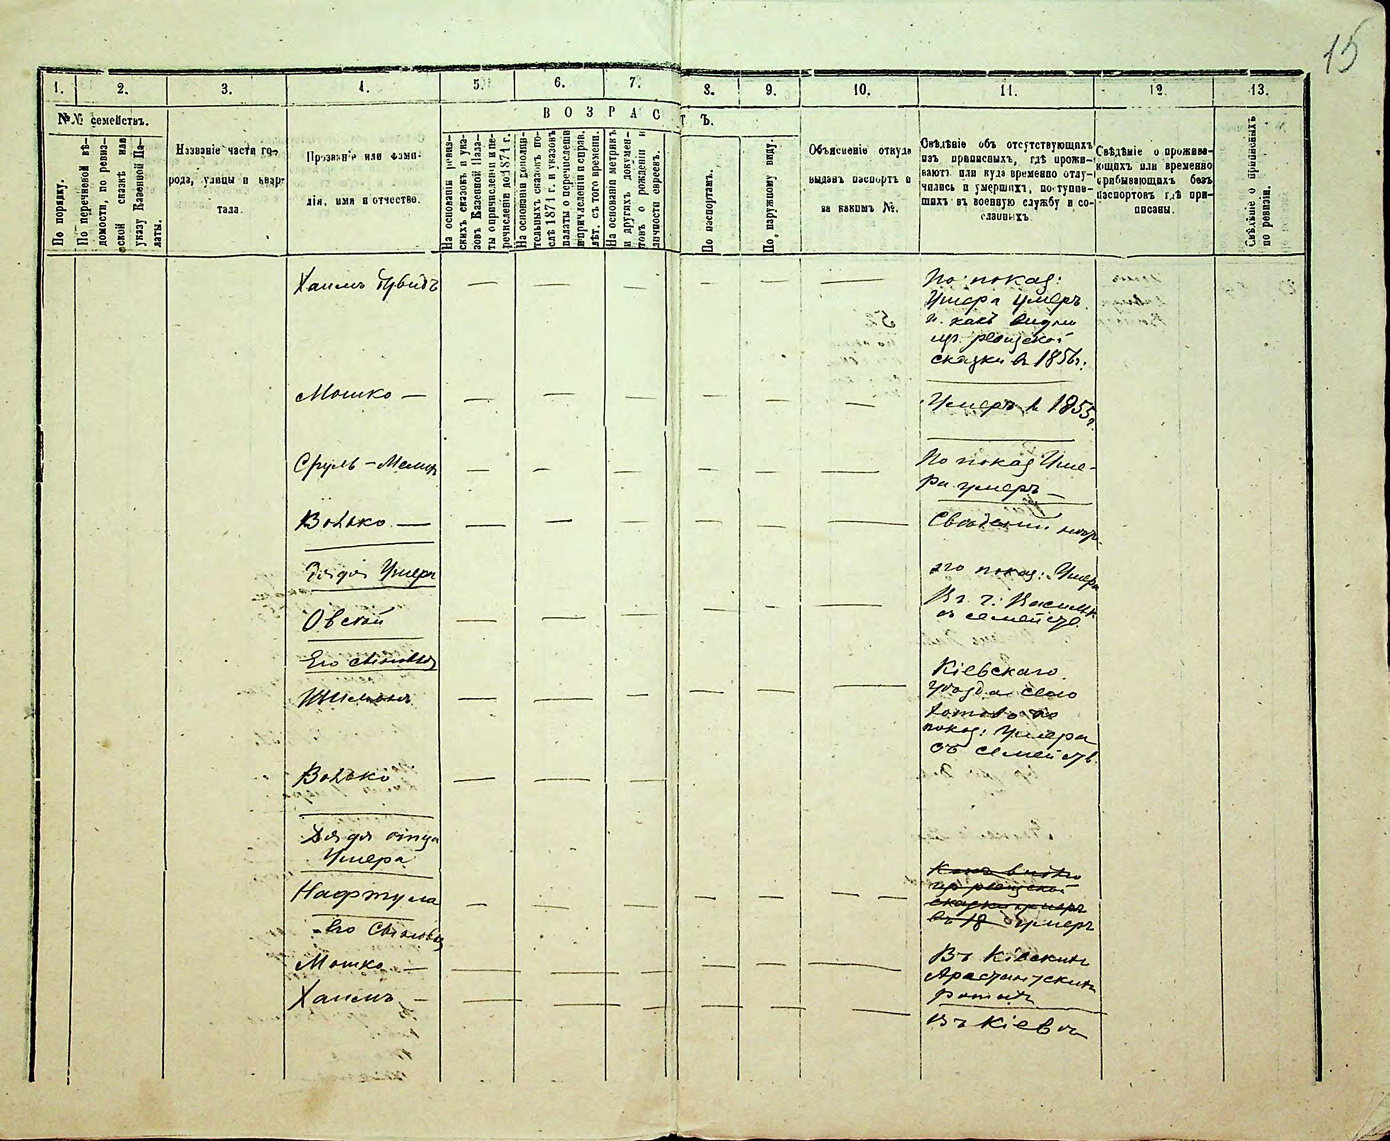 15
1. 2. 3. 4. 5. 6. 7. 8. 9. 10. 11. 12. 13.
№№ семействъ.
По порядку.
По перечневой вѣ-
домости, по ревиз-
ской сказкѣ или
указу Казенной Па-
латы.
Названіе части го-
рода, улицы и квар-
тала.
Прозваніе или фами-
лія, имя и отчество.
ВОЗРАСТЪ.
На основаніи ревиз-
скихъ сказокъ и ука-
зовъ Казенной Пала-
ты о причисленіи и пе-
речисленіи до 1874 г.
На основаніи дополни-
тельныхъ сказокъ по-
слѣ 1874 г. и указовъ
палаты о перечисленіи
и причисленіи и справ.
лѣт. съ того времени.
На основаніи метрикъ
и другихъ докумен-
товъ о рожденіи и
личности евреевъ.
По паспортамъ.
По наружному виду.
Объясненіе откуда
выданъ паспортъ и
за какимъ №.
Свѣдѣніе объ отсутствующихъ
изъ приписныхъ, гдѣ прожи-
ваютъ или куда временно отлу-
чились и умершихъ, поступив-
шихъ въ военную службу и со-
сланныхъ.
Свѣдѣніе о прожива-
ющихъ или временно
прибывающихъ безъ
паспортовъ гдѣ при-
писаны.
Свѣдѣніе о приписныхъ
по ревизіи.
Хаимъ
По показ:
Умера умеръ
и какъ видно
изъ ревизской
сказки въ 1856г.
Мошко —
Умеръ въ 1855г.
Сруль-
По показ Уме-
ра умеръ —
Волько —
Свѣденій
Дядя Умера
его показ: Умера
Овсей
Въ г:
съ семейств.
Его сыновья
Шлема
Кіевскаго
уѣзда село
показ: Умера
съ семейств.
Волько
Дядя отца
Умера
Нафтула
умеръ
его сыновья
Мошко —
Въ Кіевских
Арестантских
ротахъ
Хаимъ —
Въ Кіевѣ